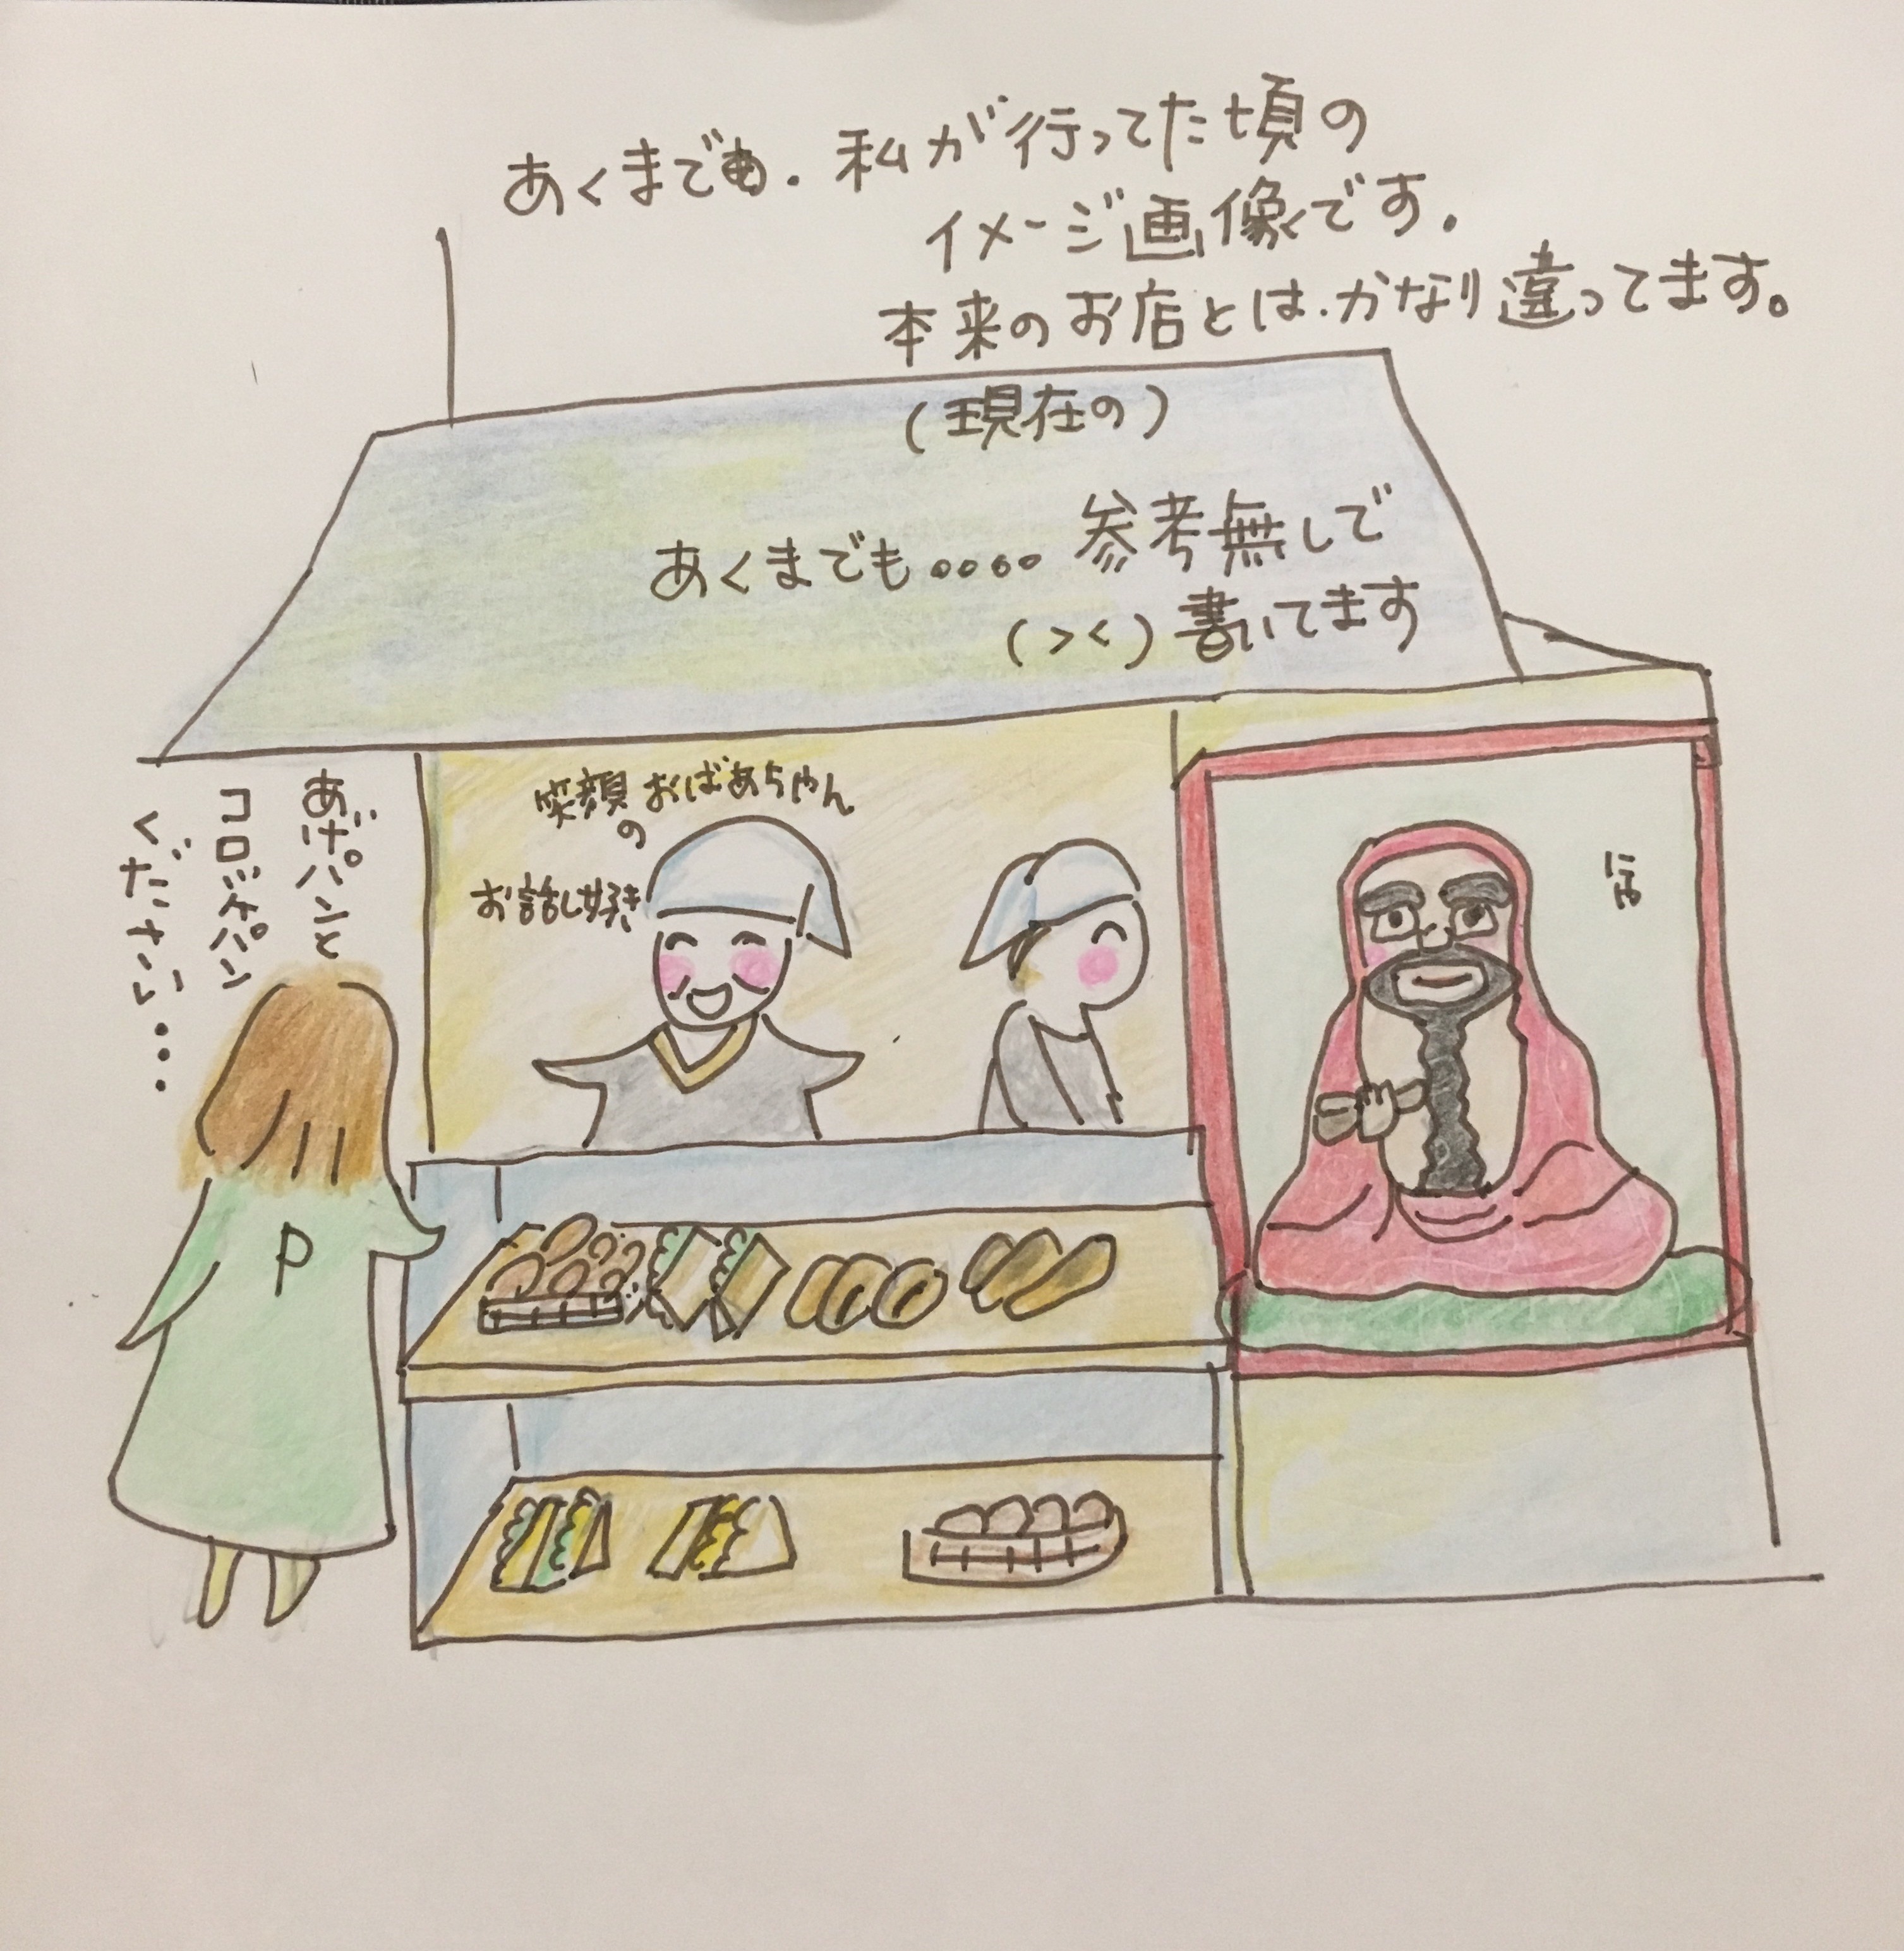 あくまでも.私が行ってた頃の
イメージ画像です.
本来のお店とは.かなり違ってます。
(現在の)
あくまでも。。。。参考無しで
(><)書いてます
笑顔のおばあちゃん
お話し好き
あげパンと
コロッケパン
ください...
P